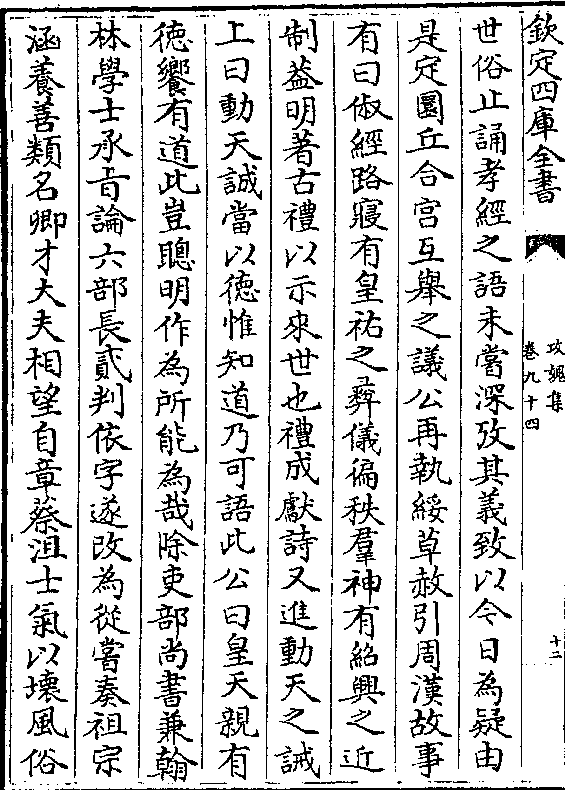 欽定四庫全書
攻媿集
卷九十四
十二
世俗止誦孝經之語未嘗深攷其義致以今日為疑由
是定圜丘合宮互舉之議公再執綏草赦引周漢故事
有曰俶經路寢有皇祐之彛儀徧秩羣神有紹興之近
制葢明著古禮以示來世也禮成獻詩又進動天之誠
上曰動天誠當以徳惟知道乃可語此公曰皇天親有
徳饗有道此豈聰明作為所能為哉除吏部尚書兼翰
林學士承旨論六部長貳判依字遂改為從嘗奏祖宗
涵養善類名卿才大夫相望自章蔡沮士氣以壊風俗